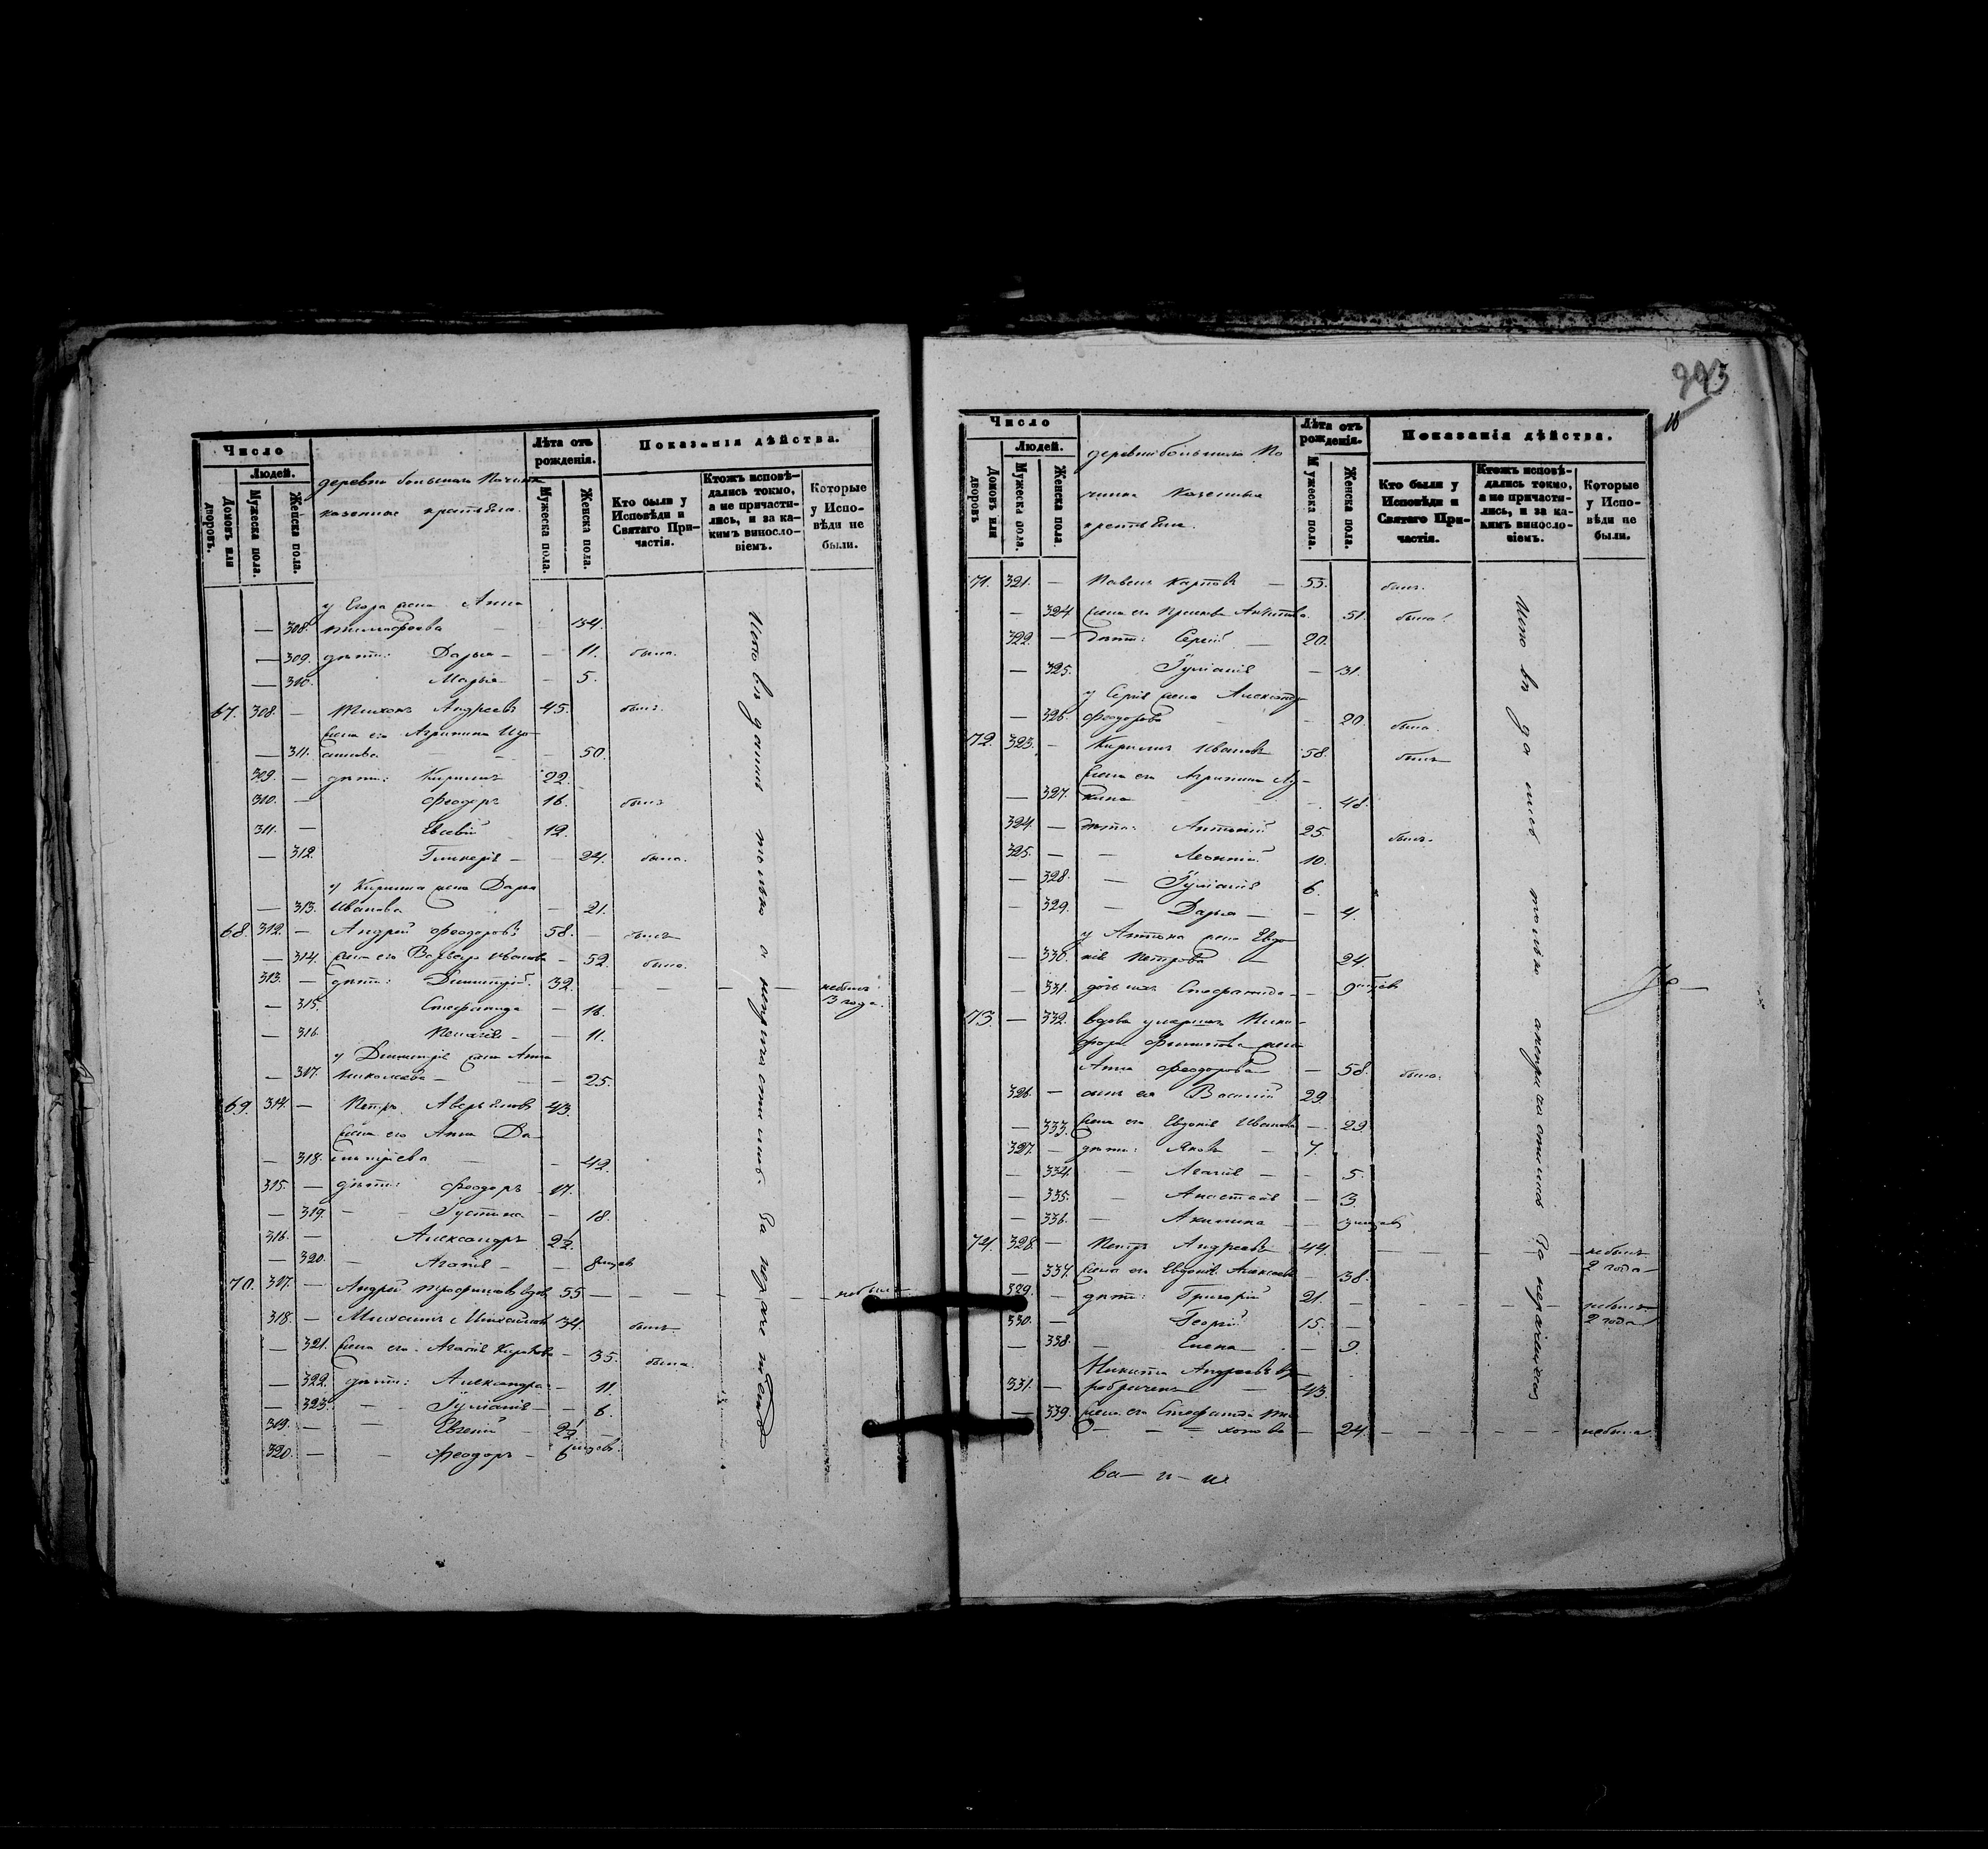 Число
Людей.
Домовъ или дворовъ.
Мужеска пола.
Женска пола.
деревни большаго Починка
казенные крестьяне.
Лѣта отъ рожденія.
Мужеска пола.
Женска пола.
Показанія дѣйства.
Кто были у Исповѣди и Святаго Причастія.
Ктожъ исповѣдались токмо, а не причастились, и за какимъ винословіемъ.
Которые у Исповѣди не были.
у Егора жена Анна
— 308. 34.
— 309. дѣти: Дарья — — 11. была.
— 310. Марья — — 5.
67. 308. — Тихонъ Андреевъ 45. былъ.
жена его Агрипина
— 311. — 50.
309. — дѣти: Кирилъ 22.
310. — Феодоръ 16. былъ
311. — Евсевій 12.
— 312. Гликерія — — 24. была.
у Кирила жена Дарья
— 313. Иванова — 21.
68. 312. — Андрей Феодоровъ 58. — былъ
— 314. жена его Варвара Иванова — 52. была.
313. — дѣти: Димитрій. 32. — — — — небылъ
3 года.
— 315. Стефанида — 16.
— 316. Пелагія — — 11.
у Димитрія жена Анна
— 317. Николаева — — — 25.
69. 314. — Петръ Аверьяновъ 43.
жена его Анна Да-
— 318. — 42.
315. — дѣти: Феодоръ 17.
— 319. — — Іустина — 18.
316. — Александръ 2½.
— 320. — Агафія — — 8
70. 317. — Андрей Трофимовъ вдовъ 55 — — — — — — небылъ
318. — Михаилъ Михайловъ 34. былъ.
— 321. жена его Агафія — 35. была.
— 322. дѣти: Александра — 11.
— 323. — — Іуліанія — — 6.
319. — — Евгеній — 2½ —
320. — — Феодоръ — 6
Исповѣдались только а непричастились за
293
Число
Людей.
Домовъ или дворовъ
Мужеска пола.
Женска пола.
деревни большаго По
чинка казенные
крестьяне.
Лѣта отъ рожденія.
Мужеска пола.
Женска пола.
Показанія дѣйства.
Кто были у Исповѣди и Святаго Причастія.
Ктожъ исповѣдались токмо, а не причастились, и за какимъ винословіемъ.
Которые у Исповѣди не были.
71. 321. — Павелъ Карповъ — 55. былъ.
— 324. жена его 51. была.
322. — дѣти: Сергій — 20.
— 325. Іуліанія — 31.
у Сергія жена Александра
— 326. Феодорова — — 20. была.
72. 323. — Кирилъ Ивановъ 58. былъ
жена его Агрипина Лу-
— 327. кина — — — 48.
324. — дѣти: Антоній 25. былъ.
325. — — Леонтій 10.
— 328. — Іуліанія 6.
— 329. — Дарья — — 4.
у Антона жена Евдо-
— 330. кія Петрова — 24.
— 331. дочь ихъ Стефанида — — 9
73. — 332. вдова умершаго Ники-
фора Филипова жена
Анна Феодорова — 58. была.
326. — сынъ ея Василій 29.
— 333. жена его Евдокія Иванова — 29.
327. — дѣти: Яковъ — 7.
— 334. — Агафія — 5.
— 335. — Анастасія — 3.
— 336. — Акилина — — 3
74. 328. — Петръ Андреевъ 44. — — — — — небылъ
2 года
— 337. жена его Евдокія Алексѣева — 38.
329. — дѣти: Григорій 21. — — — — — небылъ
330. — Георгій 15. — 2 года
— 338. — Елена — — 9.
Никита Андреевъ
331. — — 43.
— 339. жена его Стефанида Ти-
хонова — 24. — — — — — — небыла.
Исповѣдались только а непричастились за